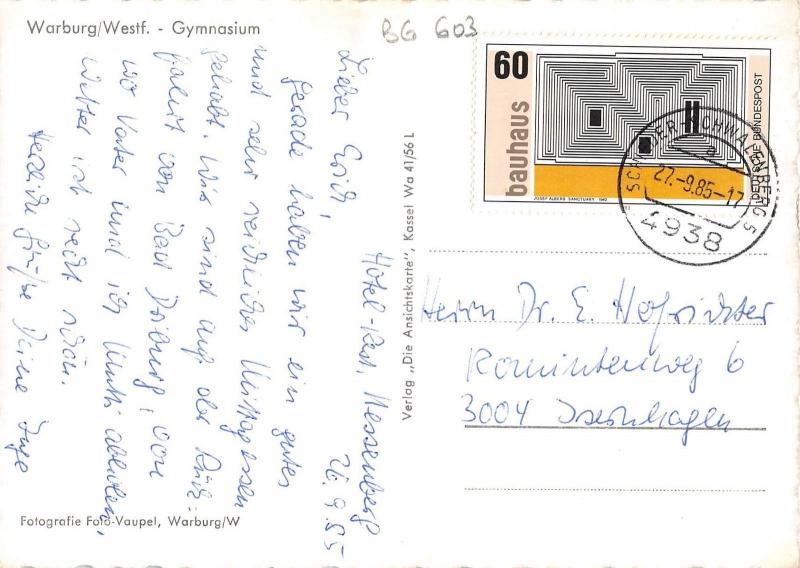 Warburg/Westf. - Gymnasium
BG 603
60
bauhaus
DEUTSCHE BUNDESPOST
JOSEF ALBERS SANCTUARY 1942
SCHIEDER-SCHWALENBERG 5
a
27.-9.85-17
4938
Hotel-Rest.
26.9.85
Lieber Erich,
gerade haben wir ein gutes
und sehr reichliches Mittagessen
gehabt. Wir sind auf der Rück-
fahrt von Bad Driburg, von
wo Vater und ich Mutti abholen,
Wetter ist recht schön.
Herzliche Grüße Deine Inge
Fotografie Foto-Vaupel, Warburg/W
Verlag „Die Ansichtskarte", Kassel Wa 41/56 L
Herrn Dr. E. Hofrichter
Rominterweg 6
3004 Isernhagen